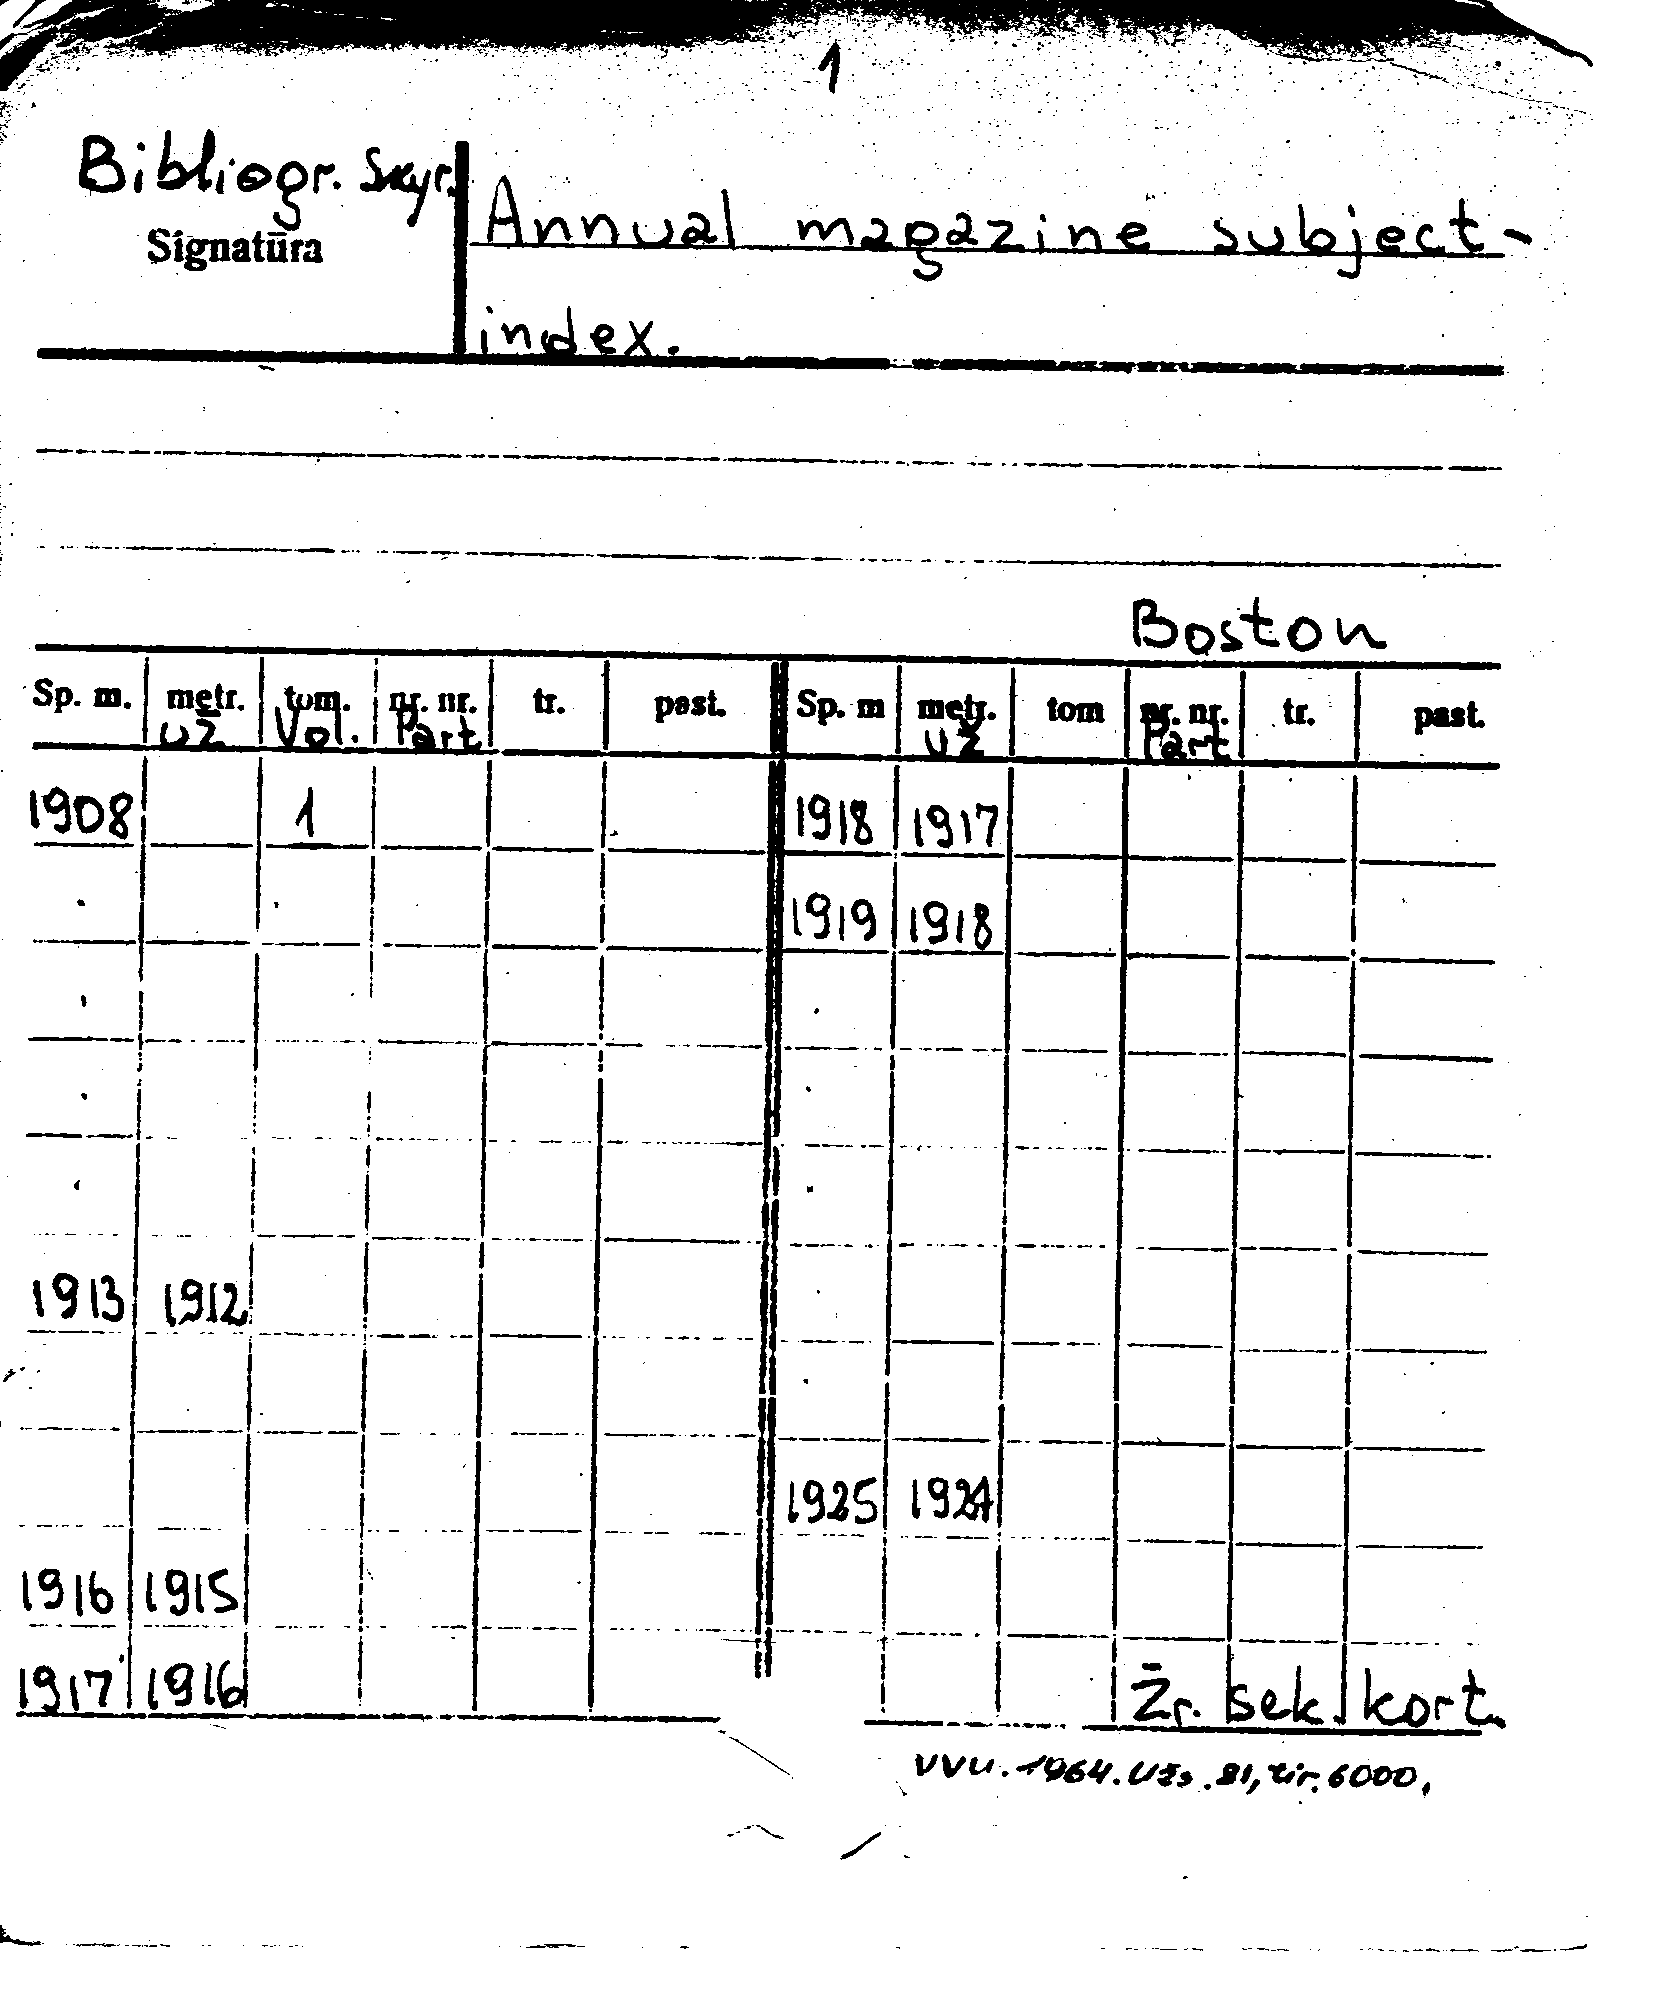 1
Bibliogr. Skyr.
Signatūra
Annual magazine subject-
index.
Boston
Sp. m. metr. tom. nr. nr. tr. past. Sp. m metr. tom nr. nr. tr. past.
už Vol. Part už Part
1908 1 1918 1917
1919 1918
1913 1912
1925 1924
1916 1915
1917 1916
Žr. sek. kort.
VVU. 1964. Užs. 81, tir. 6000.